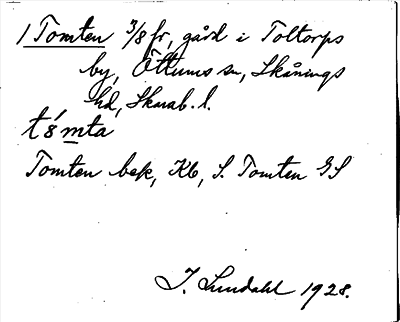 1 Tomten 3/8 fr, gård i Toltorps
by, Öttums sn, Skånings
hd, Skarab. l.
tómta
Tomten bek, Kb, S. Tomten GS
J. Lundahl 1928.